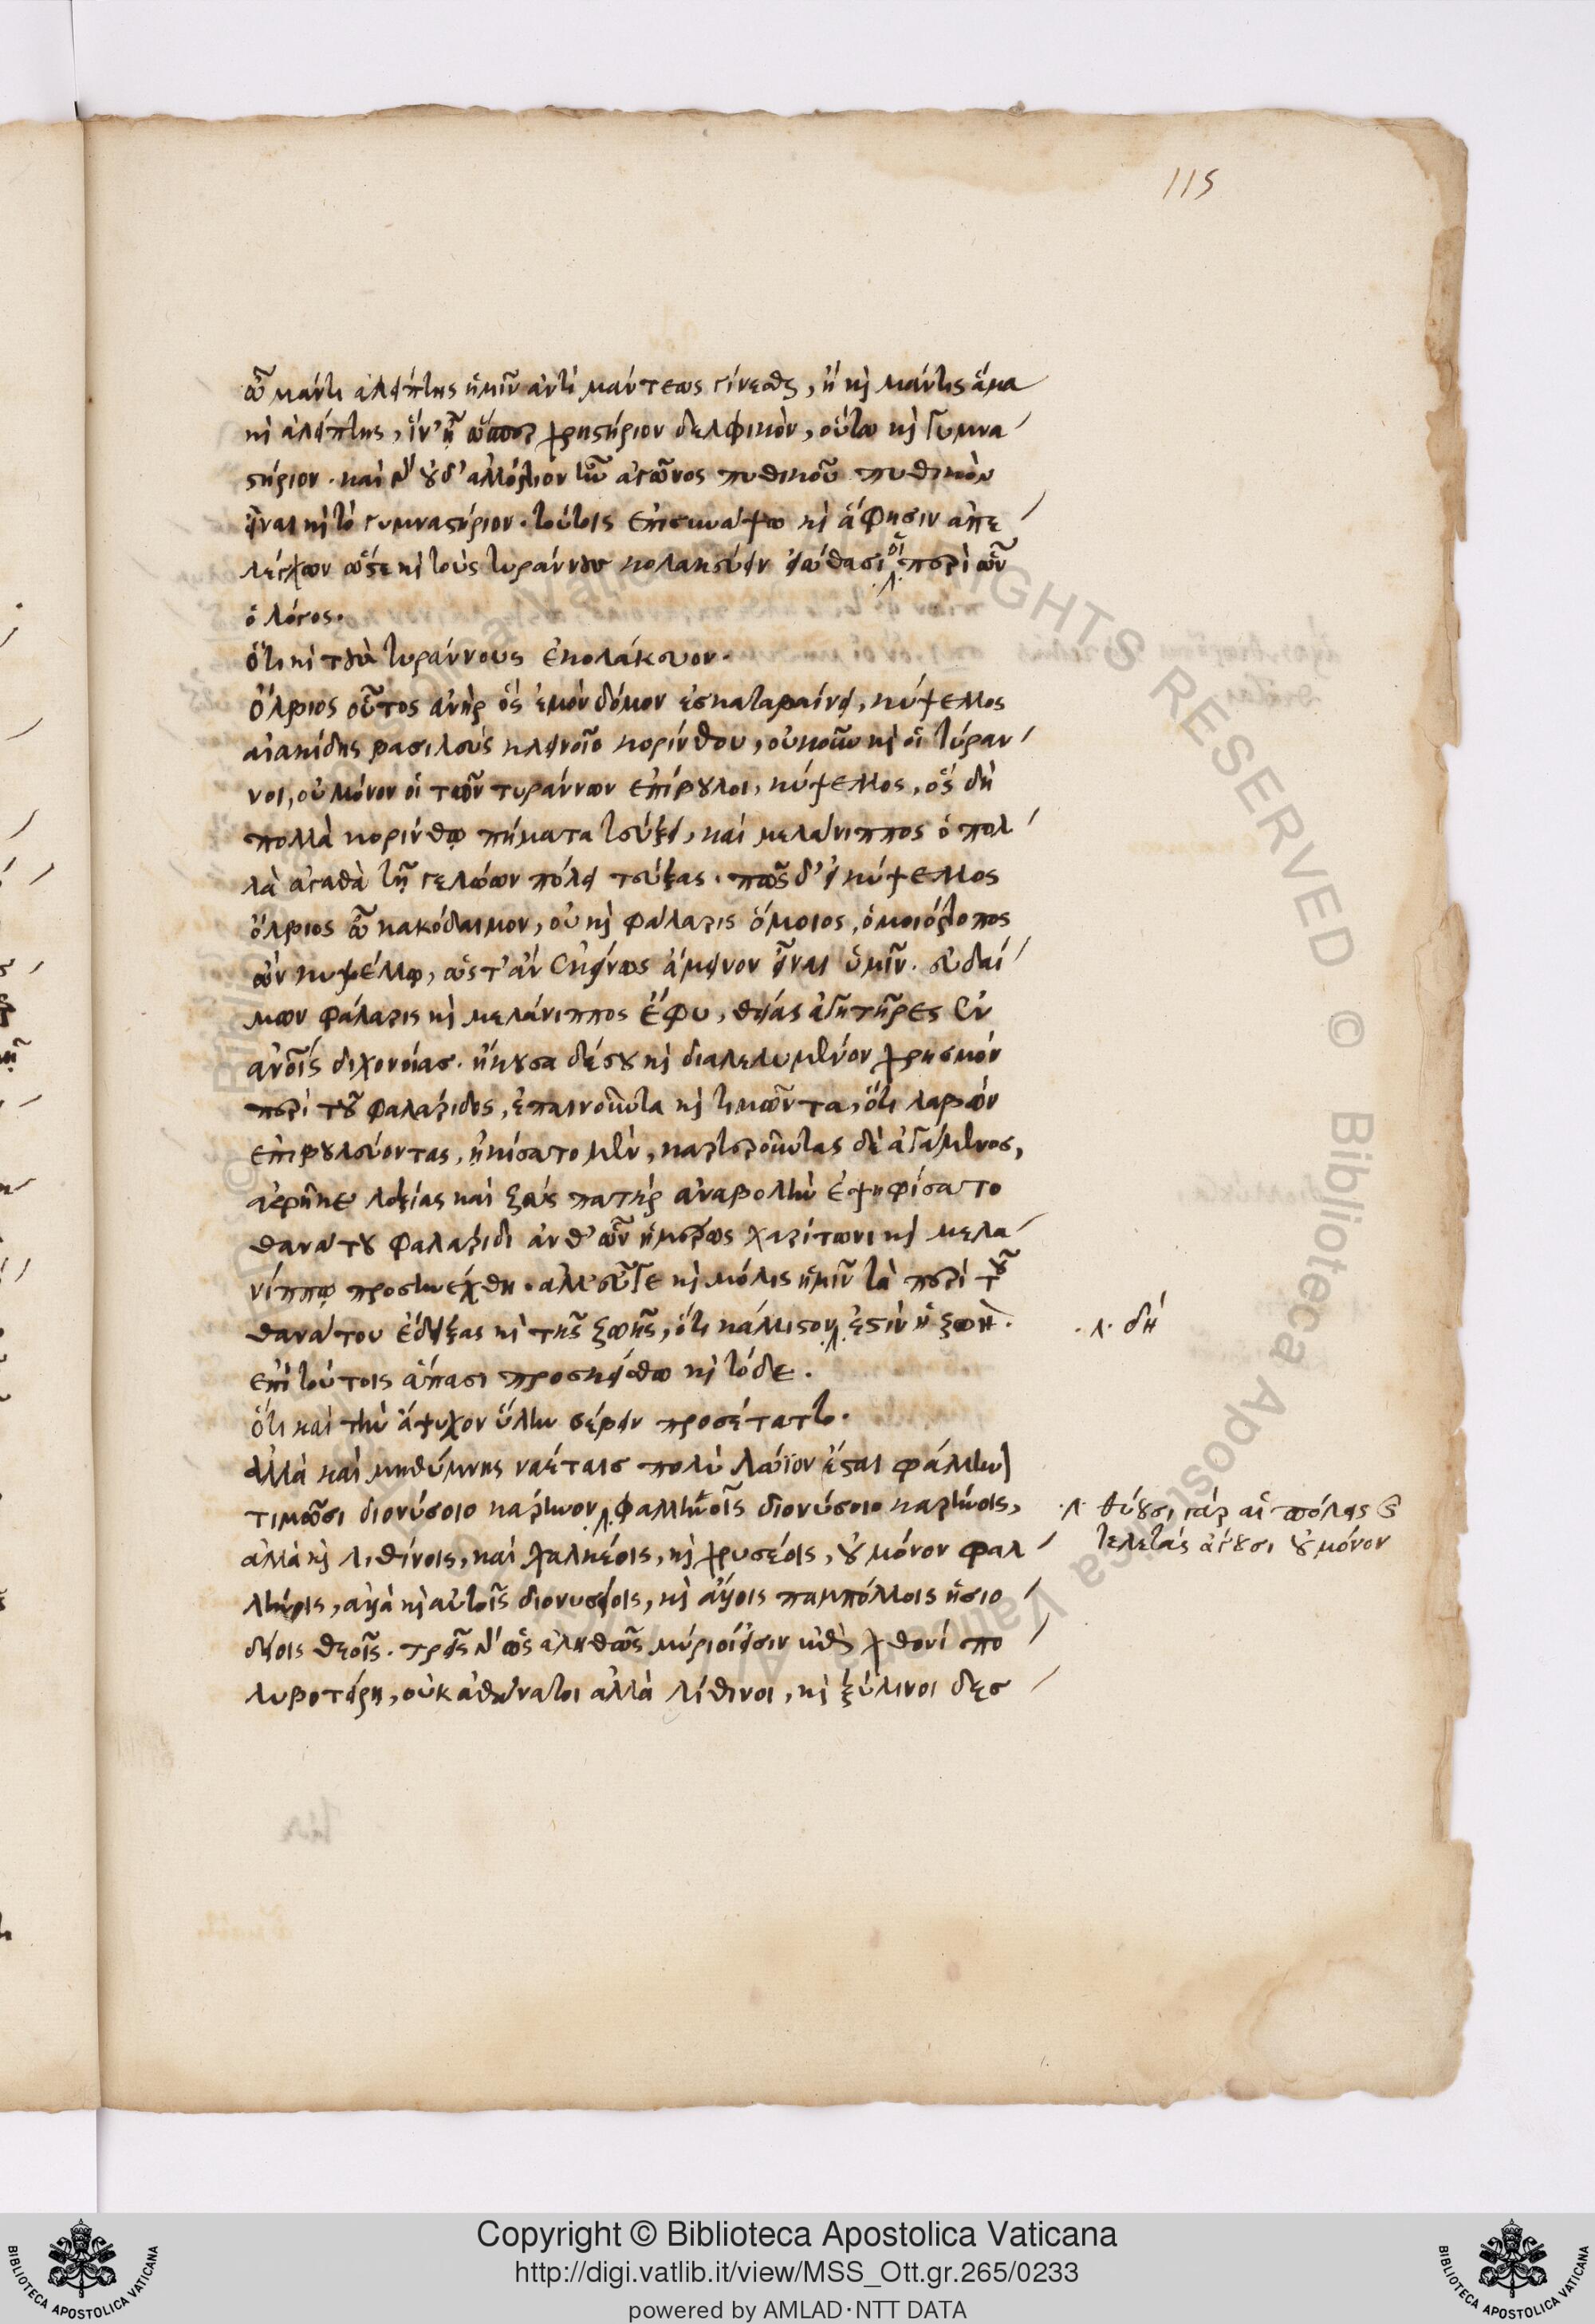 115
ὦ μάντι ἀλείπτης ἡμῖν ἀντὶ μάντεως γίνεσθαι, ἢ καὶ μάντις ἅμα
καὶ ἀλείπτης, ἵν' ᾖ ὥσπερ χρηστήριον δελφικὸν, οὕτω καὶ γυμνα
στήριον. καὶ γὰρ οὐδ' ἀλλότριον τοῦ ἀγῶνος πυθικοῦ πυθικὸν
εἶναι καὶ τὸ γυμναστήριον. τούτοις ἐπισυνάψω καὶ ἄφησιν ἀπε
λέγχων ὥστε καὶ τοὺς τυράννους κολακεύειν εἰώθασι οἱ περὶ ὧν
ὁ λόγος.
ὅτι καὶ τοὺς τυράννους ἐκολάκευον.
ὄλβιος οὗτος ἀνὴρ ὃς ἐμὸν δόμον ἐσκαταβαίνει, κύψελλος
αἰακίδης βασιλεὺς κλεινοῖο κορίνθου, οὐκοῦν καὶ οἱ τύραν
νοι, οὐ μόνον οἱ τῶν τυράννων ἐπίβουλοι, κύψελλος, ὃς δὴ
πολλὰ κορίνθῳ πήματα τεύξει, καὶ μελάνιππος ὁ πολ
λὰ ἀγαθὰ τῇ γελώων πόλει τεύξας. πῶς δ' εἰ κύψελλος
ὄλβιος ὦ κακόδαιμον, οὐ καὶ φάλαρις ὅμοιος, ὁμοιότροπος
ὢν κυψέλλῳ, ὥστ' ἂν ἐκείνως ἄμεινον εἶναι ὑμῖν. εὐδαί
μων φάλαρις καὶ μελάνιππος ἔφυ, θείας ἁγητῆρες ἐν
ἀνδράσι διχονοίας. ἤκουσα δέ σου καὶ διαλελυμένον χρησμὸν
περὶ τοῦ φαλάριδος, ἐπαινοῦντα καὶ τιμῶντα, ὅτι λαβὼν
ἐπιβουλεύοντας, ᾐκίσατο μὲν, καρτεροῦντας δὲ ἀγάμενος,
ἀφῆκε λοξίας καὶ ζεὺς πατὴρ ἀναβολὴν ἐψηφίσατο
θανάτου φαλάριδι ἀνθ' ὧν ἡμέρως χαρίτωνι καὶ μελα
νίππῳ προσηνέχθη. ἀλλ' εὖ γε καὶ μόλις ἡμῖν τὰ περὶ τοῦ
θανάτου ἔδειξας καὶ τῆς ζωῆς, ὅτι κάλλιστον ἐστὶν ἡ ζωή. ·λ· δή
ἐπὶ τούτοις ἅπασι προσκείσθω καὶ τόδε.
ὅτι καὶ τὴν ἄψυχον ὕλην σέβειν προσέταττε.
ἀλλὰ καὶ μηθύμνης ναέταις πολὺ λώϊον ἔσται φάλλην
τιμῶσι διονύσοιο κάρηνον, φαλληνοῖς διονύσοιο καρήνοις, ·λ· θύουσι γὰρ αἱ πόλεις καὶ
ἀλλὰ καὶ λιθίνοις, καὶ χαλκέοις, καὶ χρυσέοις, οὐ μόνον φαλ τελετὰς ἄγουσι οὐ μόνον
ληνοῖς, ἀλλὰ καὶ αὐτοῖς διονυσείοις, καὶ ἄλλοις παμπόλλοις ἡσιο
δείοις θεοῖς. τρεῖς γὰρ ὡς ἀληθῶς μύριοί εἰσιν ἐπὶ χθονὶ πο
λυβοτείρῃ, οὐκ ἀθάνατοι ἀλλὰ λίθινοι, καὶ ξύλινοι δεσ
Copyright © Biblioteca Apostolica Vaticana
http://digi.vatlib.it/view/MSS_Ott.gr.265/0233
powered by AMLAD·NTT DATA